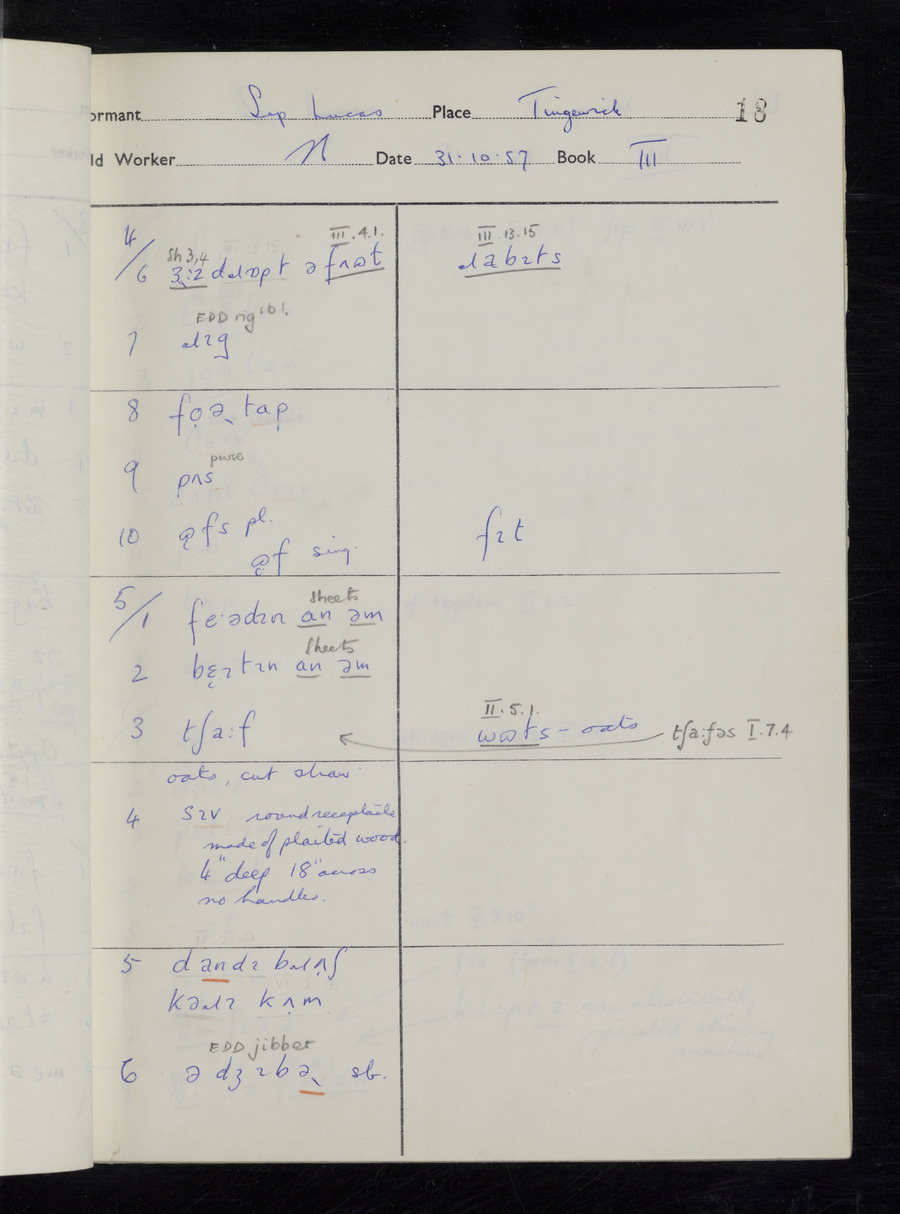 ormant Sep Lucas Place Tingewick 18
ld Worker N Date 31.10.57 Book III
4/6 Sh 3,4 III.4.1. III.13.15
dɹɒpt ə fɹʊt ɹabɪts
EDD rig sb1.
7 ɹɪg
8 tap
pure
9 pʌs
10 pl. fɪt
sing.
sheets
5/1 an əm
sheets
2 an əm
II.5.1.
3 tʃa:f – oats tʃa:fəs I.7.4
oats, cut straw
4 sɪv round receptacle
made of plaited wood.
4" deep 18" across
no handles.
5 dandɪ bɹʌʃ
kəɹɪ kʌm
EDD jibber
6 ə dʒɪbə sb.